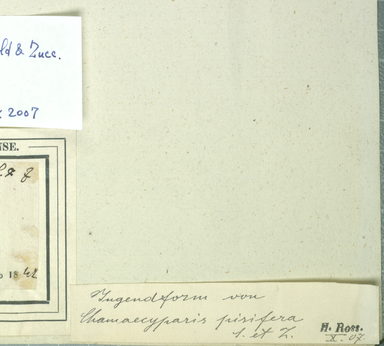 ld & Zucc.
2007
NSE.
18 42
Jugendform von
Chamaecyparis pisifera
S. et Z.
H. Ross.
X. 07